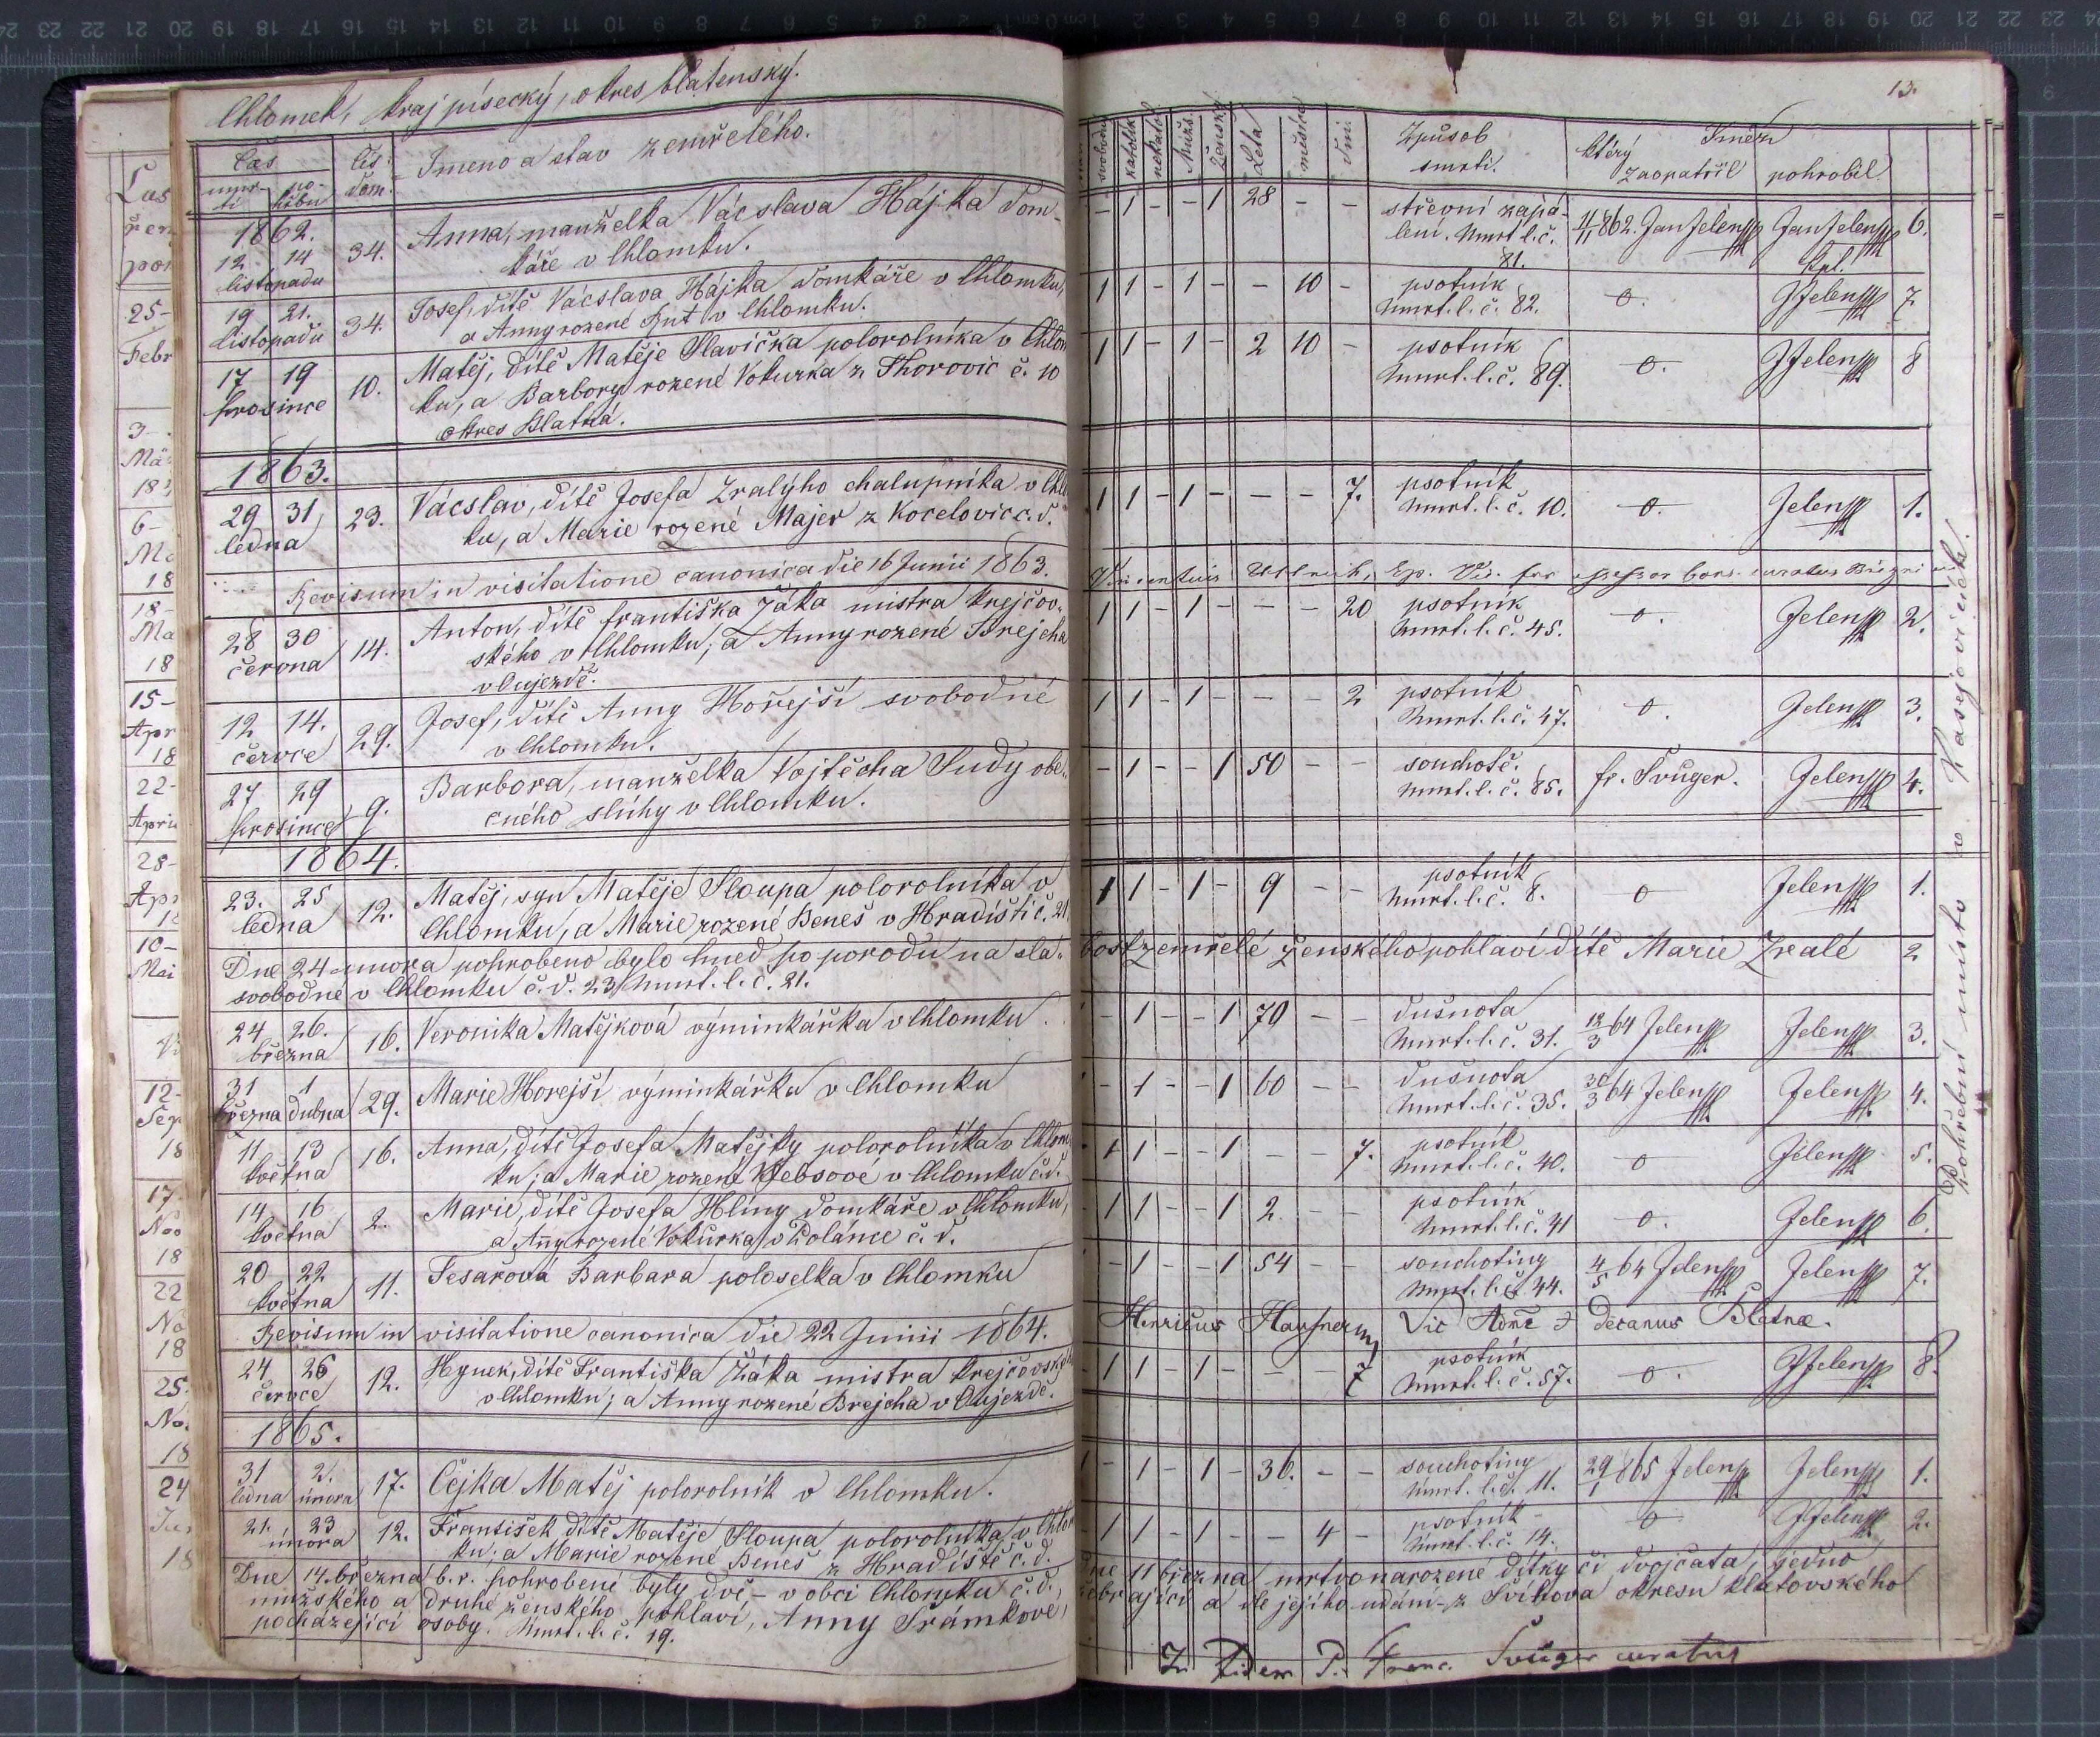 Chlomek, kraj písecký, okres blatenský.
13.
Čas
úmrtí
pohřbu
Čís. dom.
Jmeno a stav zemřelého.
svobodní
katolík
nekatol.
Mužs.
Ženský
Leta
měsíce
dní.
Způsob
smrti.
Jmén
který
zaopatřil
pohrobil
1862.
12 14
listopadu
34.
Anna, manželka Vácslava Hájka dom-
káře v Chlomku.
- 1 - - 1 28 - -
střevní zapá-
lení. Úmrt. l. č.
81.
4/11 862. Jan Jelen
Jan Jelen
Kpl.
6.
19 21.
listopadu
34.
Josef, dítě Vácslava Hájka domkáře v Chlomku,
a Anny rozené v Chlomku.
1 1 - 1 - - 10 -
psotník
Úmrt. l. č. 82.
0.
JJelen
7.
17 19
prosince
10.
Matěj, dítě Matěje Slavička polorolníka v Chlom
ku, a Barbory rozené Vokurka z Thorovic č. 10
okres Blatná.
1 1 - 1 - 2 10 -
psotník
Úmrt. l. č. 89.
0.
JJelen
8
1863.
29 31
ledna
23.
Vácslav, dítě Josefa Zralýho chalupníka v Chlo
ku, a Marie rozené Majer z Kocelovic č. d.
1 1 - 1 - - - 7.
psotník
Úmrt. l. č. 10.
0.
Jelen
1.
Revisum in visitatione canonica die 16 Junii 1863.
Vincentius Ullrich, Ep. Vic.
28 30
června
14.
Anton, dítě Františka Žáka mistra krejčov-
ského v Chlomku; a Anny rozené Brejcha
v Oujezdě.
1 1 - 1 - - - 20
psotník
Úmrt. l. č. 45.
0.
Jelen
2.
12 14.
července
29.
Josef, dítě Anny Hořejší svobodné
v Chlomku.
1 1 - 1 - - - 2
psotník
Úmrt. l. č. 47.
0.
Jelen
3.
27 29
prosince
9.
Barbora, manželka Vojtěcha Sudy obe-
cného slúhy v Chlomku.
- 1 - - 1 50 - -
souchotě.
Úmrt. l. č. 85.
fr. Švůger.
Jelen
4.
1864.
23. 25
ledna
12.
Matěj, syn Matěje Sloupa polorolníka v
Chlomku, a Marie rozené Beneš v Hradišti č. 21
1 1 - 1 - 9 - -
psotník
Úmrt. l. č. 8.
0
Jelen
1.
Dne 24 února pohrobeno bylo hned po porodu na sla-
bost zemřelé ženského pohlaví dítě Marie Zralé
2
svobodné v Chlomku č. d. 23 Úmrt. l. č. 21.
24 26.
března
16.
Veronika Matějková výminkářka v Chlomku
- 1 - - 1 79 - -
dušnota
Úmrt. l. č. 31.
12/3 64 Jelen
Jelen
3.
31 1
března dubna
29.
Marie Horejší výminkářka v Chlomku
- 1 - - 1 60 - -
dušnota
Úmrt. l. č. 35.
30/3 64 Jelen
Jelen
4.
11 13
května
16.
Anna, dítě Josefa Matějky polorolníka v Chlom
ku; a Marie rozené Klebsové v Chlomku č. d.
1 1 - - 1 - - 7.
psotník
Úmrt. l. č. 40.
0
Jelen
5.
14 16
května
2.
Marie, dítě Josefa Hlíny domkáře v Chlomku,
a Anny rozené Vokurka v Polánce č. d.
1 1 - - 1 2 - -
psotník
Úmrt. l. č. 41
0.
Jelen
6.
20 22
května
11.
Tesařová Barbara poloselka v Chlomku
- 1 - - 1 54 - -
souchotiny
Úmrt. l. č. 44.
4/5 64 Jelen
Jelen
7.
Revisum in visitatione canonica die 22 Junii 1864.
Henricus Vic Decanus Blatnæ.
24 26
července
12.
Hynek, dítě Františka Žáka mistra krejčovského
v Chlomku; a Anny rozené Brejcha v Oujezdě.
1 1 - 1 - - 7
psotník
Úmrt. l. č. 57.
0.
JJelen
8.
1865.
31 2.
ledna února
17.
Čejka Matěj polorolník v Chlomku.
- 1 - 1 - 36. - -
souchotiny
Úmrt. l. č. 11.
29/1 865 Jelen
Jelen
1.
21. 23
února
12.
František dítě Matěje Sloupa polorolníka v Chlom
ku; a Marie rozené Beneš z Hradiště č. d.
1 1 - 1 - - 4 -
psotník
Úmrt. l. č. 14.
0
JJelen
2.
Dne 14. března b. r. pohrobené byly dvě - v obci Chlomku č. d.,
dne 11 března mrtvo narozené dítky či dvojčata, jedno
mužského a druhé ženského pohlaví, Anny Šrámkové,
žobrající a dle jejího udání - z Švihova okresu klatovského
pocházející osoby. Úmrt. l. č. 19.
Franc. Švůger curatus
Pohřební místo v Kasejovicích.